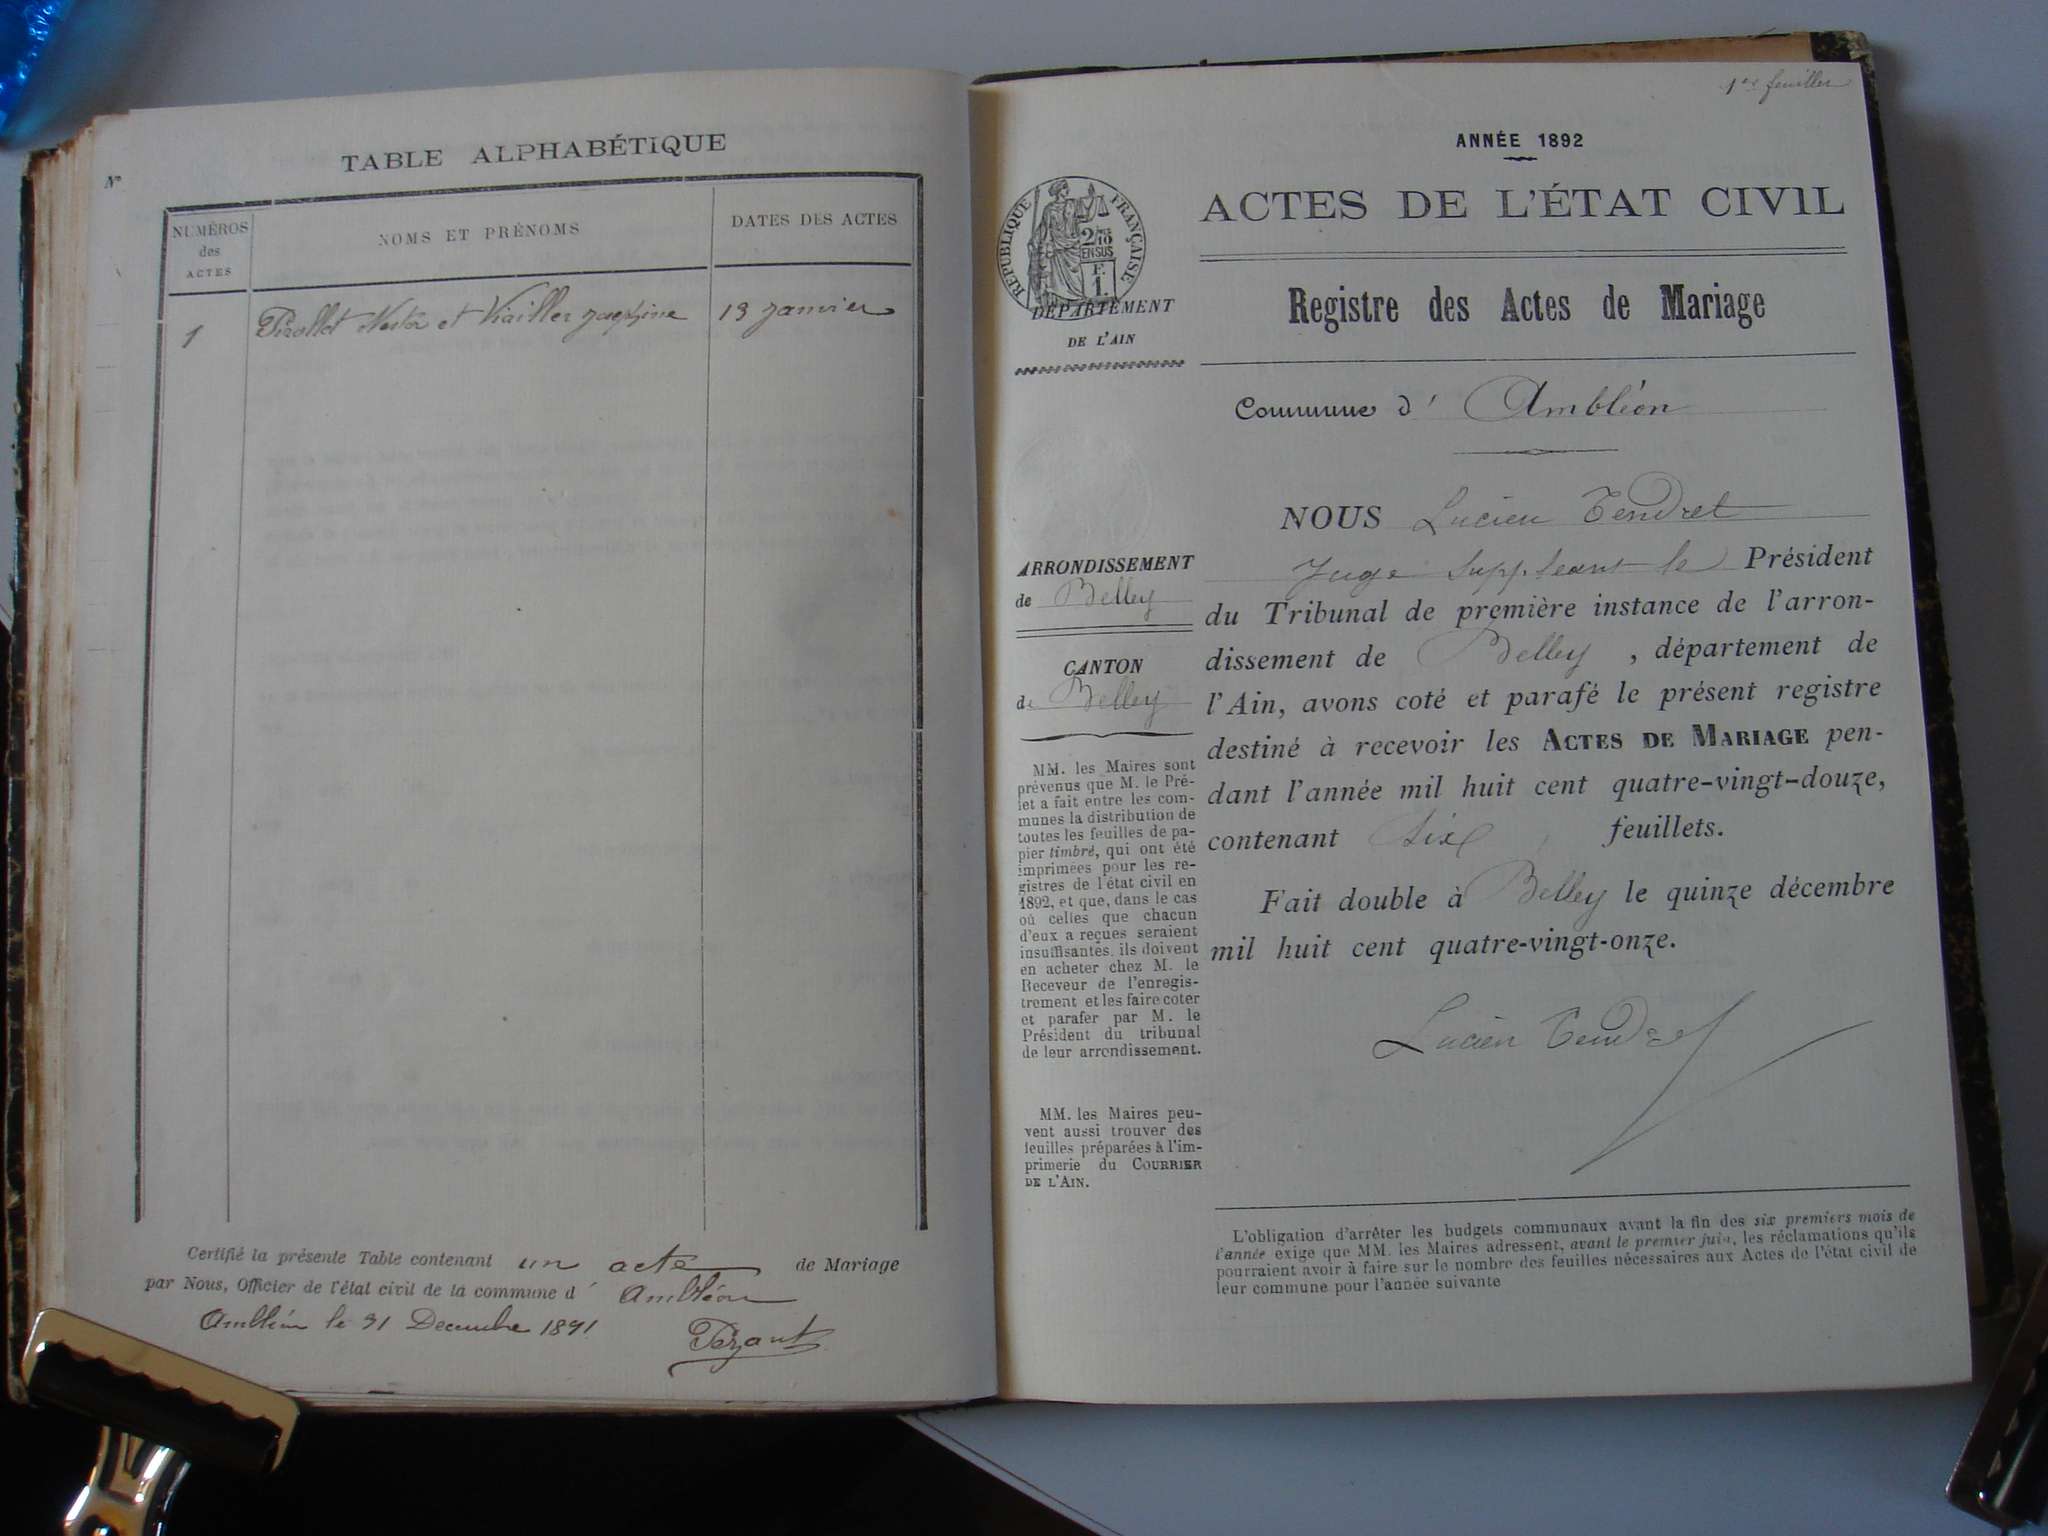 TABLE ALPHABÉTIQUE
N°
NUMÉROS
des
ACTES
NOMS ET PRÉNOMS
DATES DES ACTES
1
Pirollet Nestor et Viailler Josephine
13 Janvier
Certifié la présente Table contenant un acte de Mariage
par Nous, Officier de l'état civil de la commune d' Ambléon
Ambléon le 31 Decembre 1891
1er feuillet
ANNÉE 1892
ACTES DE L'ÉTAT CIVIL
RÉPUBLIQUE FRANÇAISE
2/10
EN SUS
F.
1.
DÉPARTEMENT
DE L'AIN
Registre des Actes de Mariage
Commune d' Ambléon
ARRONDISSEMENT
de Belley
CANTON
de Belley
MM. les Maires sont
prévenus que M. le Pré-
fet a fait entre les com-
munes la distribution de
toutes les feuilles de pa-
pier timbré, qui ont été
imprimées pour les re-
gistres de l'état civil en
1892, et que, dans le cas
où celles que chacun
d'eux a reçues seraient
insuffisantes, ils doivent
en acheter chez M. le
Receveur de l'enregis-
trement et les faire coter
et parafer par M. le
Président du tribunal
de leur arrondissement.
MM. les Maires peu-
vent aussi trouver des
feuilles préparées à l'im-
primerie du COURRIER
DE L'AIN.
NOUS Lucien Tendret
Juge Suppléant le Président
du Tribunal de première instance de l'arron-
dissement de Belley, département de
l'Ain, avons coté et parafé le présent registre
destiné à recevoir les ACTES DE MARIAGE pen-
dant l'année mil huit cent quatre-vingt-douze,
contenant Six feuillets.
Fait double à Belley le quinze décembre
mil huit cent quatre-vingt-onze.
Lucien Tendret
L'obligation d'arrêter les budgets communaux avant la fin des six premiers mois de
l'année exige que MM. les Maires adressent, avant le premier juin, les réclamations qu'ils
pourraient avoir à faire sur le nombre des feuilles nécessaires aux Actes de l'état civil de
leur commune pour l'année suivante